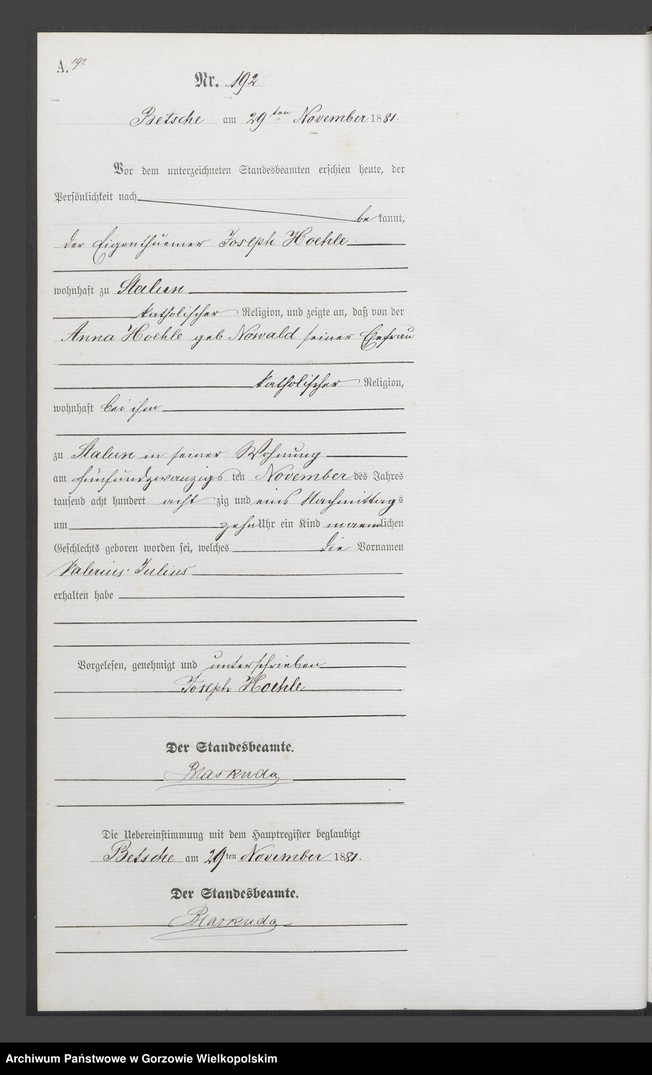 A. 192
Nr. 192
Betsche am 29ten November 1881.
Vor dem unterzeichneten Standesbeamten erschien heute, der
Persönlichkeit nach
bekannt,
der Eigenthuemer Joseph Hoehle
wohnhaft zu Stalun
katholischer Religion, und zeigte an, daß von der
Anna Hoehle geb Nowald seiner Ehefrau
katholischer Religion,
wohnhaft bei ihm
zu Stalun in seiner Wohnung
am fünfundzwanzigsten November des Jahres
tausend acht hundert achtzig und eins Nachmittags
um zehn Uhr ein Kind maennlichen
Geschlechts geboren worden sei, welches die Vornamen
Valerius Julius
erhalten habe
Vorgelesen, genehmigt und unterschrieben
Joseph Hoehle
Der Standesbeamte.
Blaskuda
Die Uebereinstimmung mit dem Hauptregister beglaubigt
Betsche am 29ten November 1881.
Der Standesbeamte.
Blaskuda
Archiwum Państwowe w Gorzowie Wielkopolskim